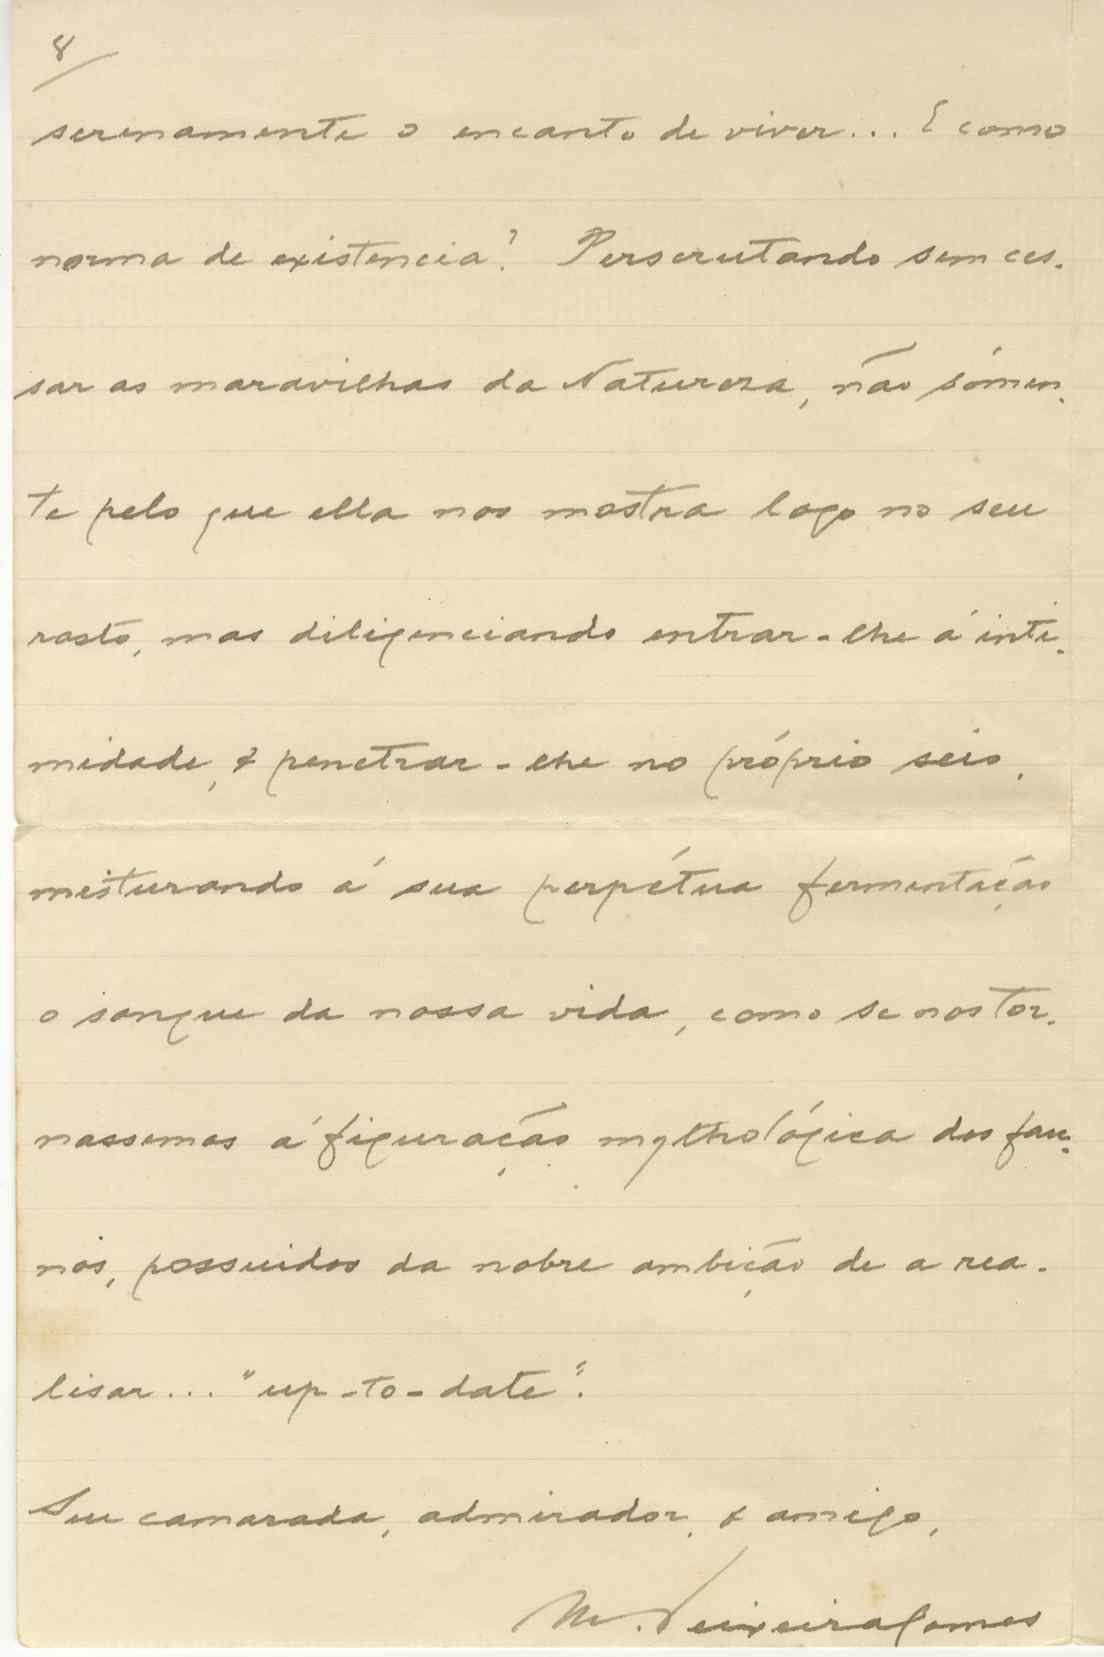 8
serenamente o encanto de viver... E como
norma de existencia? Perscrutando sem ces-
sar as maravilhas da Natureza, não sómen-
te pelo que ella nos mostra logo no seu
rosto, mas diligenciando entrar-lhe á inti-
midade, & penetrar-lhe no próprio seio,
misturando á sua perpétua fermentação
o sangue da nossa vida, como se nos tor-
nassemos á figuração mythológica dos fau-
nos, possuidos da nobre ambição de a rea-
lisar... "up-to-date".
Seu camarada, admirador, & amigo,
M. Teixeira Gomes